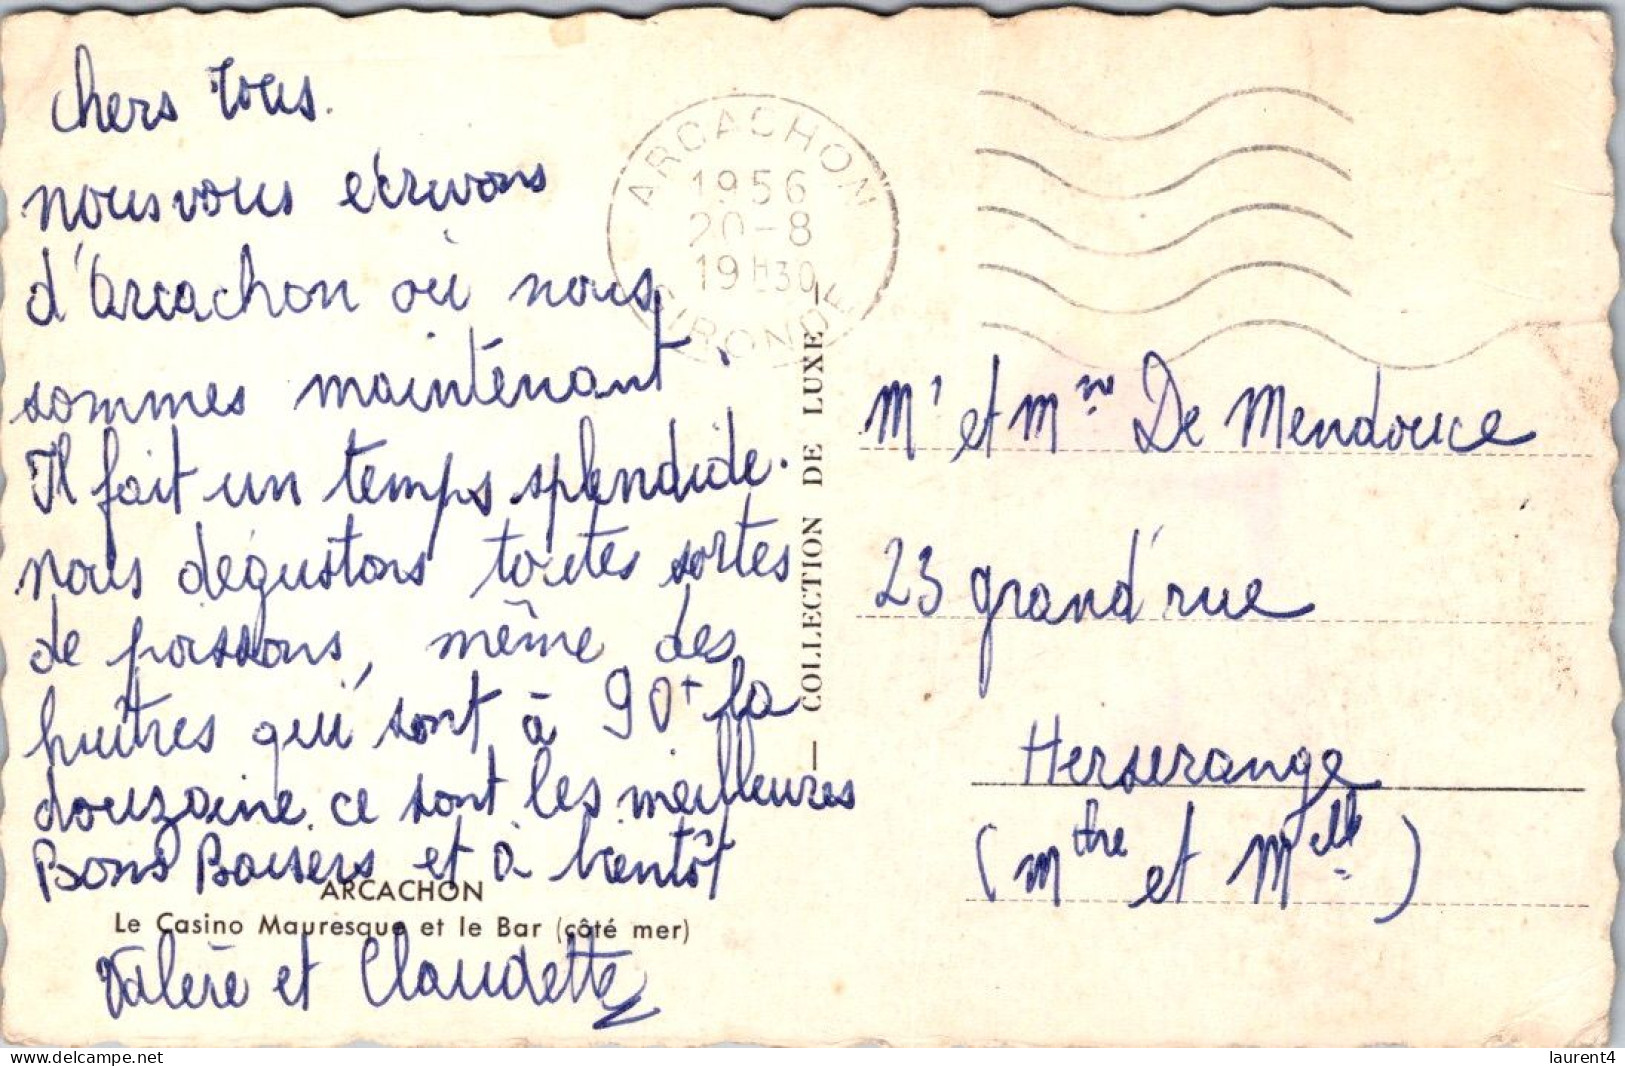 chers tous.
nous vous écrivons
d'Arcachon où nous
sommes maintenant.
Il fait un temps splendide.
nous dégustons toutes sortes
de poissons, même des
huîtres qui sont à 90f la
douzaine. ce sont les meilleures
Bons Baisers et à bientôt
ARCACHON
Le Casino Mauresque et le Bar (côté mer)
Valère et Claudette
ARCACHON
1956
20-8
19H30
GIRONDE
— COLLECTION DE LUXE —
Mr et Mme De Mendouce
23 grand'rue
Herserange
(Mthe et Melle)
laurent4